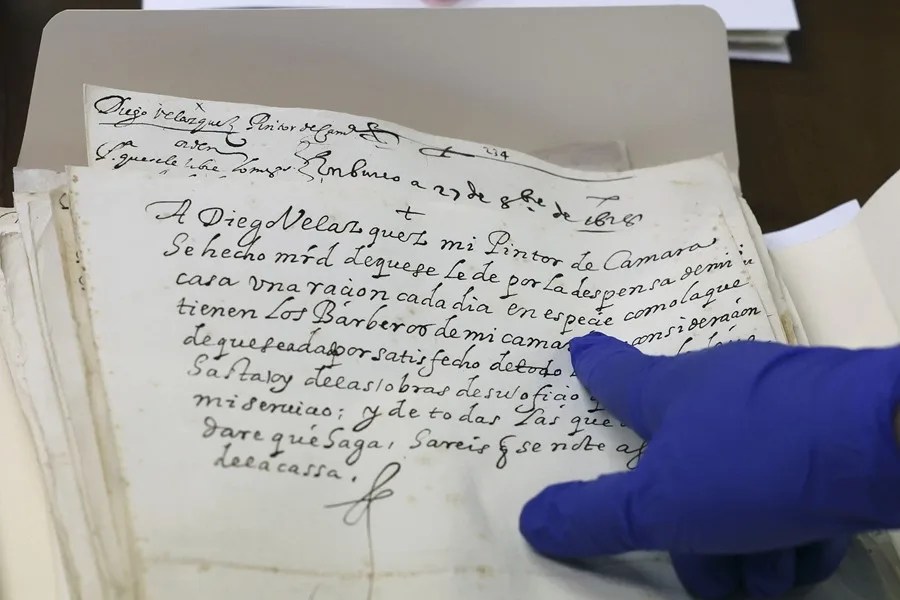 Diego Velazquez Pintor de Cam
orden
Sa. quesele libre
234
En bureo a 27 de 8bre. de 1628
A Diego Velazquez mi Pintor de Camara
Se hecho mrd dequese le de por la despensa demi
casa vna racion cada dia en especie como la que
tienen Los Barberos de mi cama consideraçion
dequeseada por satisfecho detodo
Sasta oy delas obras desu oficio q
mi seruicio; y de todas Las que
dare que Saga, Sareis q se note a
dela cassa.